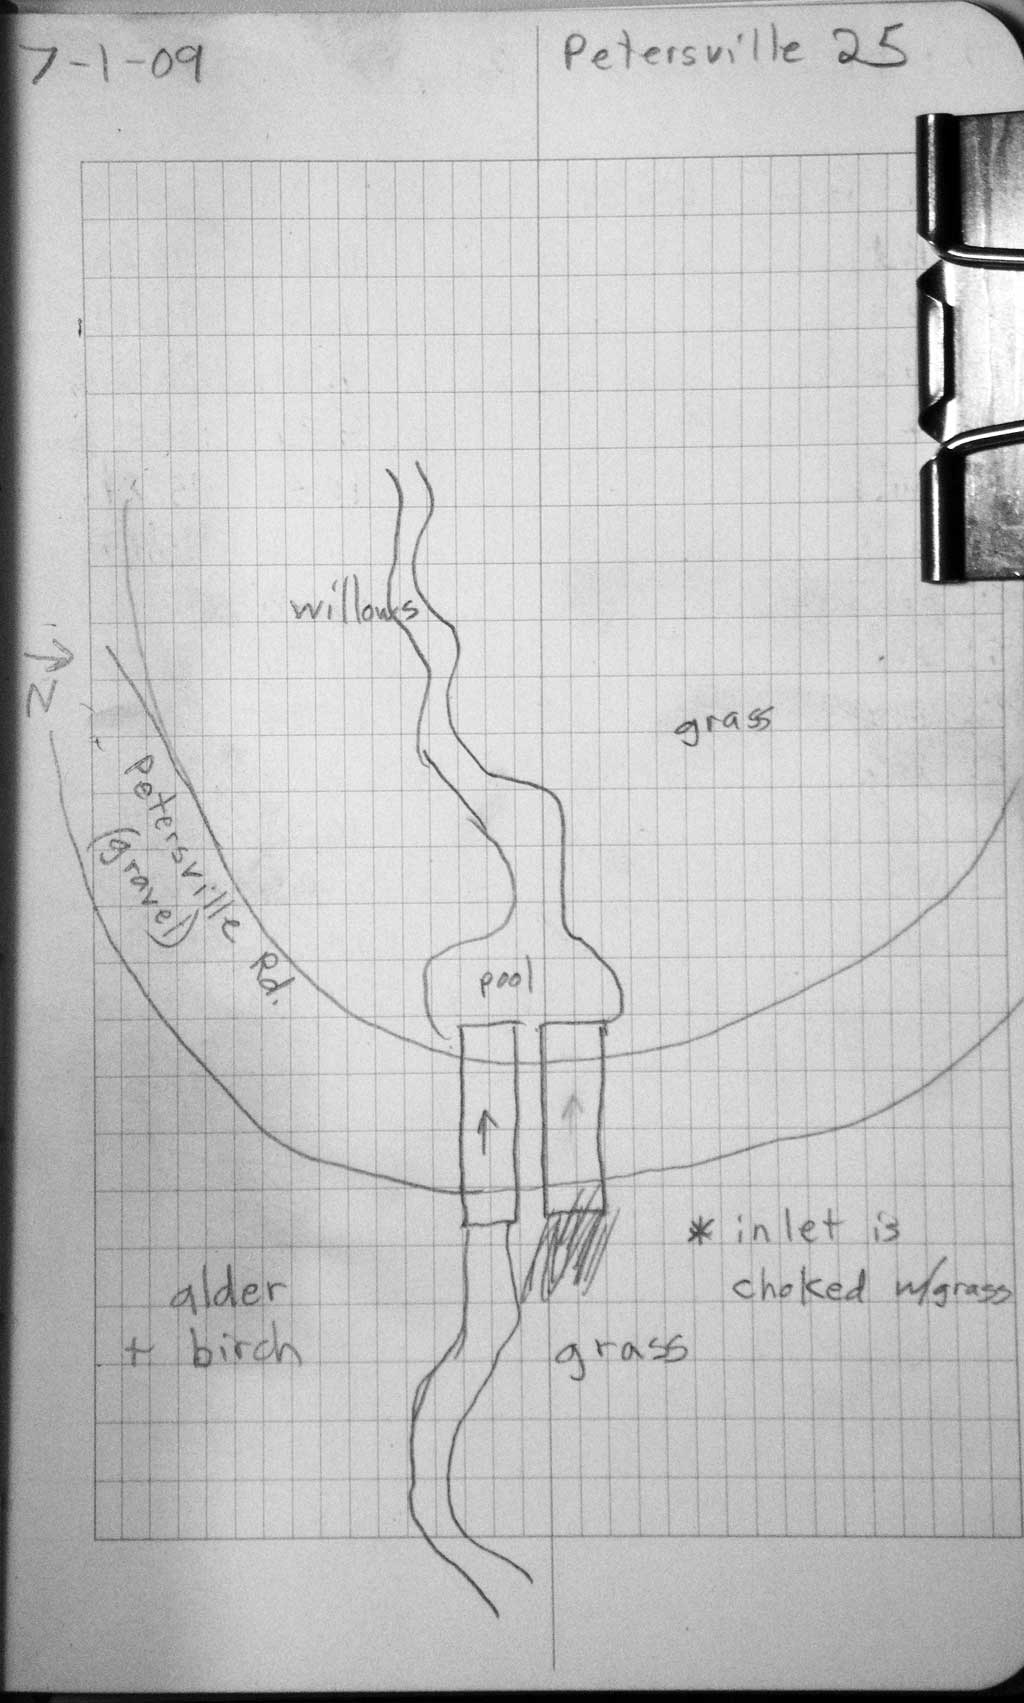 7-1-09
Petersville 25
willows
grass
N
Petersville Rd.
(gravel)
pool
* inlet is
choked w/grass
alder
+ birch
grass